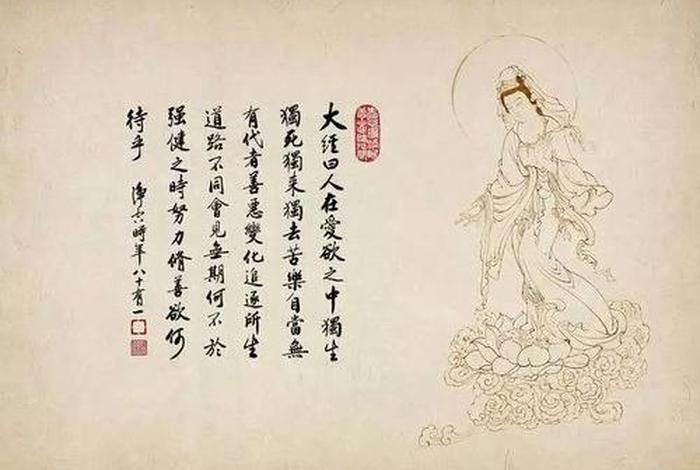 大經曰人在愛欲之中獨生
獨死獨來獨去苦樂自當無
有代者善惡變化追逐所生
道路不同會見無期何不於
强健之時努力脩善欲何
待乎
淨空時年八十有一